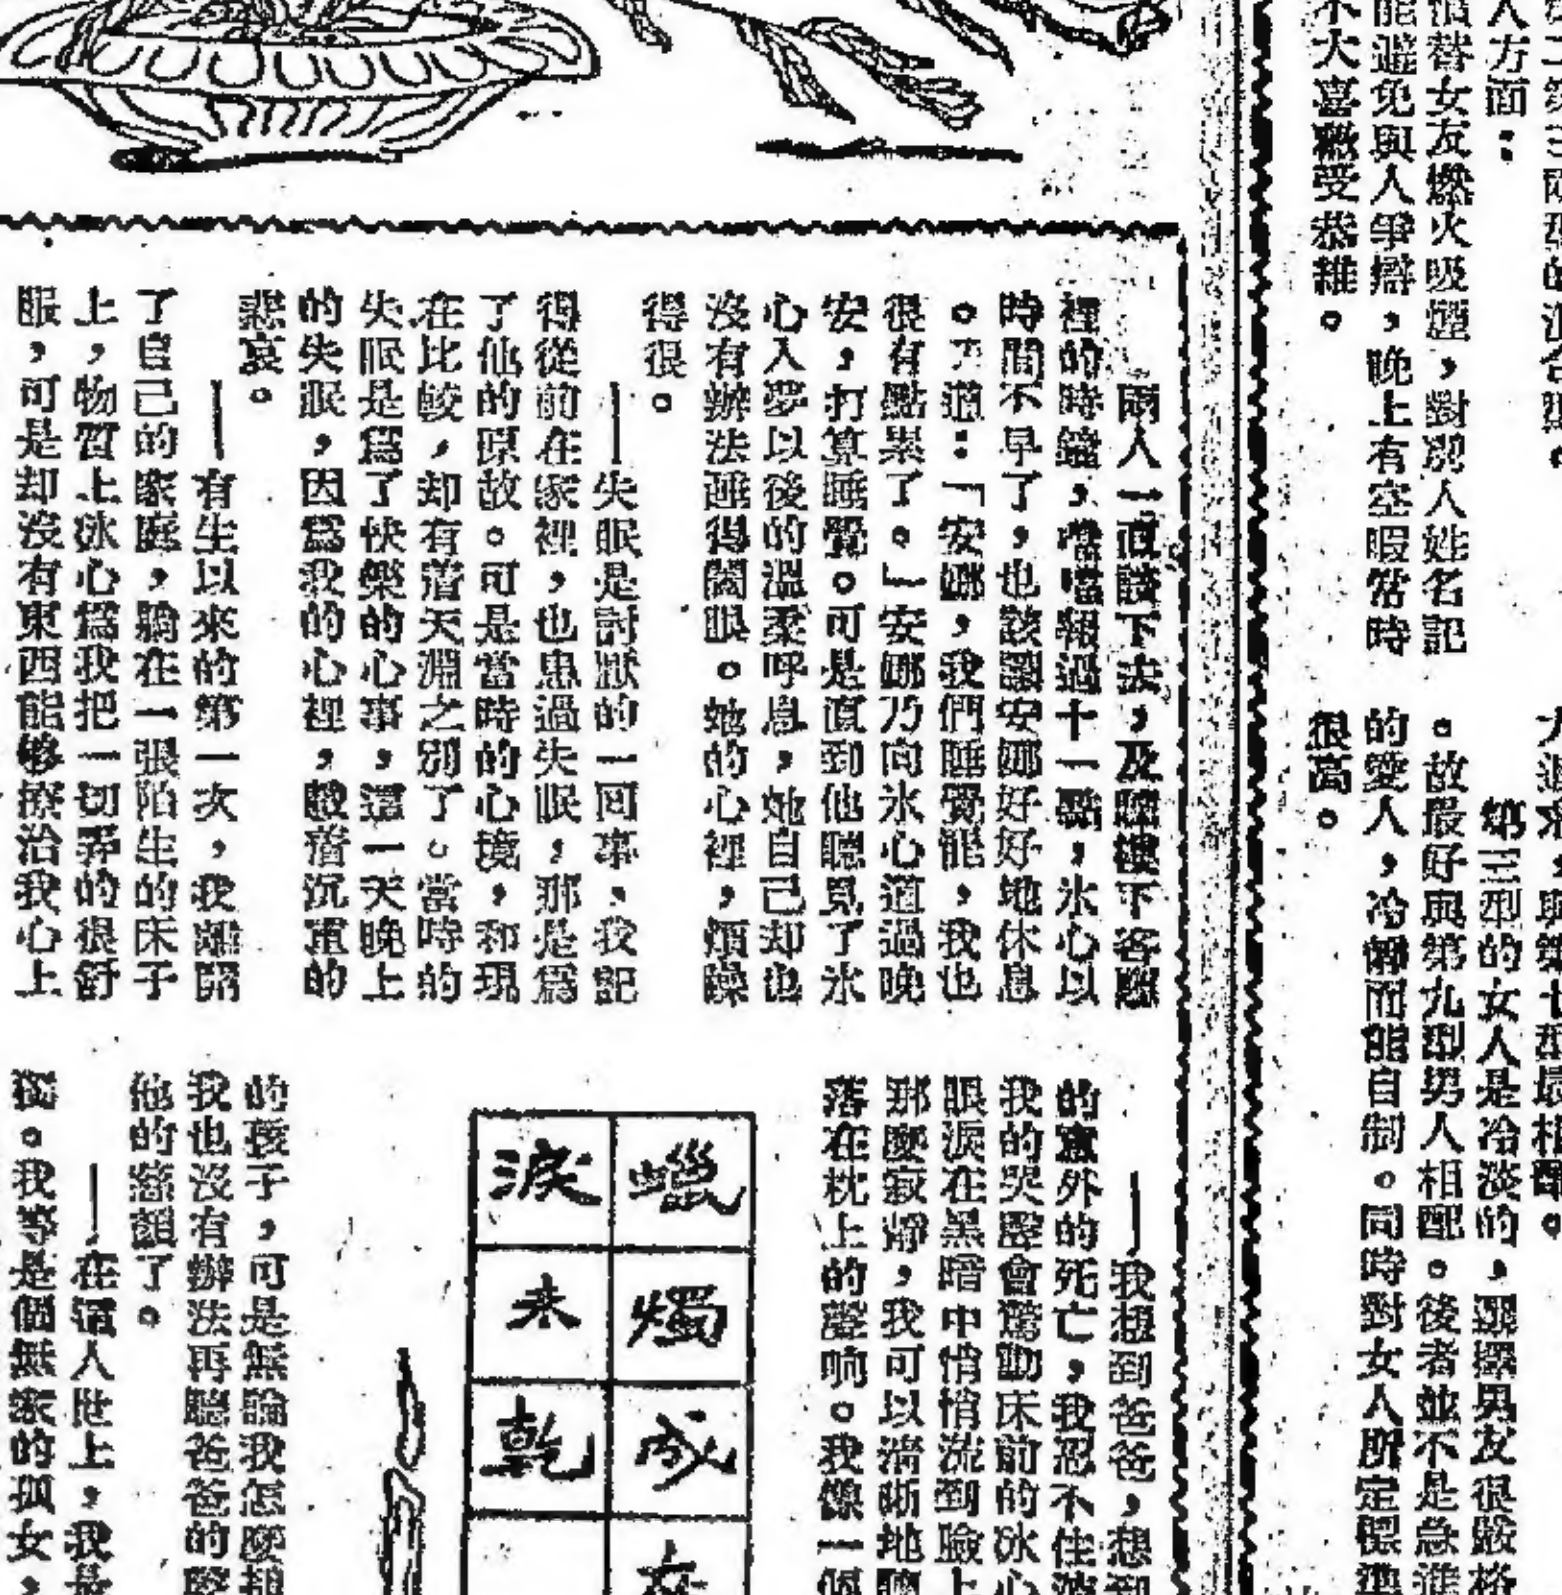 人方面:
替女友燃火吸煙,對別人姓名記
能避免與人爭辯,晚上有空暇常時
不大喜歡受恭維。
第三型的女人是冷淡的,選擇男友很嚴格
。故最好與第九型男人相配。後者並不是急進
的愛人,冷僻而能自制。同時對女人所定標準
很高。
兩人一直談下去,及聽樓下客廳
裡的時鐘,噹噹報過十一點,冰心以
時間不早了,也該讓安娜好好地休息
。乃道:「安娜,我們睡覺罷,我也
很有點累了。」安娜乃向冰心道過晚
安,打算睡覺。可是直到他聽見了冰
心入夢以後的溫柔呼息,她自己却也
沒有辦法睡得闔眼。她的心裡,煩躁
得很。
——失眠是討厭的一回事,我記
得從前在家裡,也患過失眠,那是爲
了他的原故。可是當時的心境,和現
在比較,却有着天淵之別了。當時的
失眠是爲了快樂的心事,這一天晚上
的失眠,因爲我的心裡,戲着沉重的
悲哀。
——有生以來的第一次,我離開
了自己的家庭,躺在一張陌生的床子
上,物質上冰心爲我把一切弄的很舒
服,可是却沒有東西能够療治我心上
——我想到爸爸,想到
的意外的死亡,我忍不住
我的哭聲會驚動床前的冰心
眼淚在黑暗中悄悄流到臉上
那麼寂靜,我可以清晰地聽
落在枕上的聲响。我像一個
蠟燭成
淚未乾
的孩子,可是無論我怎麼想
我也沒有辦法再聽爸爸的聲
他的慈顏了。
——在這人世上,我是
獨。我等是個無家的孤女,